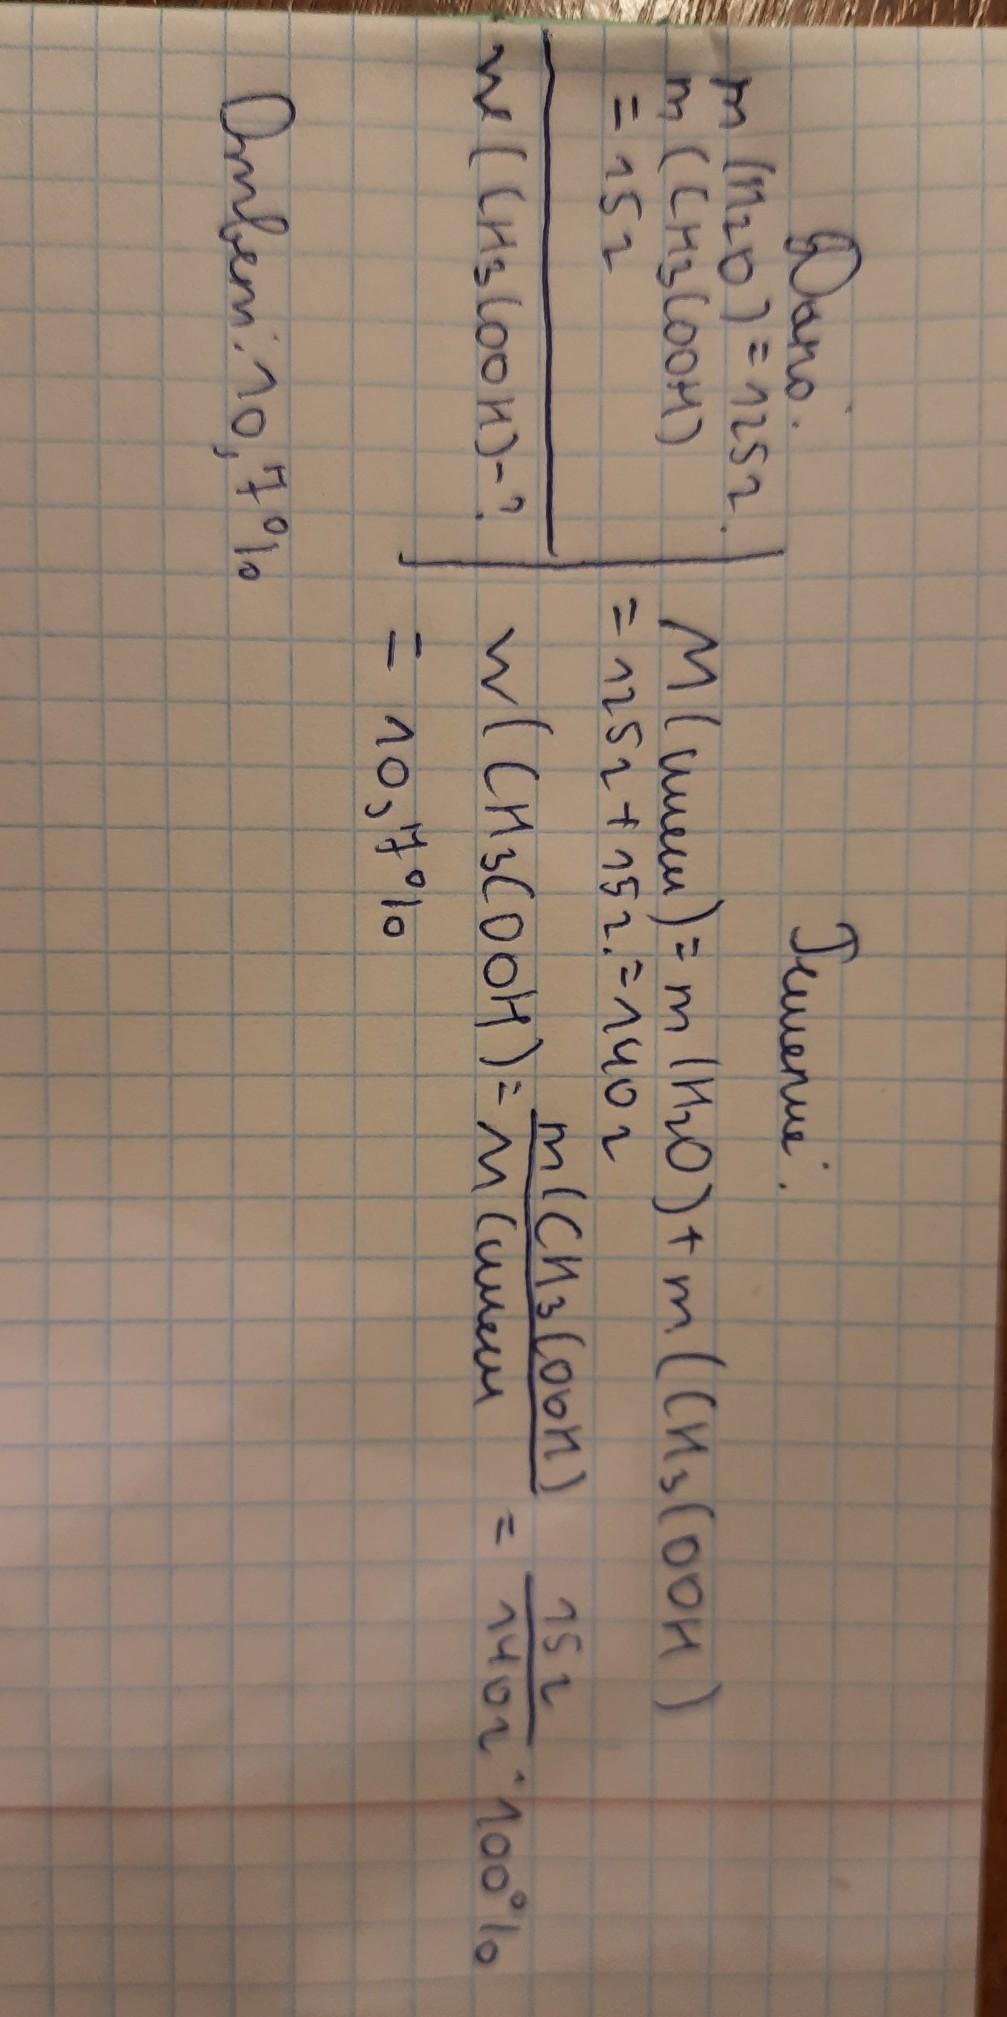 Дано:
m (H2O) = 125 г.
m (CH3COOH)
= 15 г
w (CH3COOH) - ?
Решение:
M (смеси) = m (H2O) + m (CH3COOH)
= 125 г + 15 г. = 140 г
w (CH3COOH) = m (CH3COOH) / M (смеси = 15 г / 140 г · 100%
= 10,7%
Ответ: 10,7%